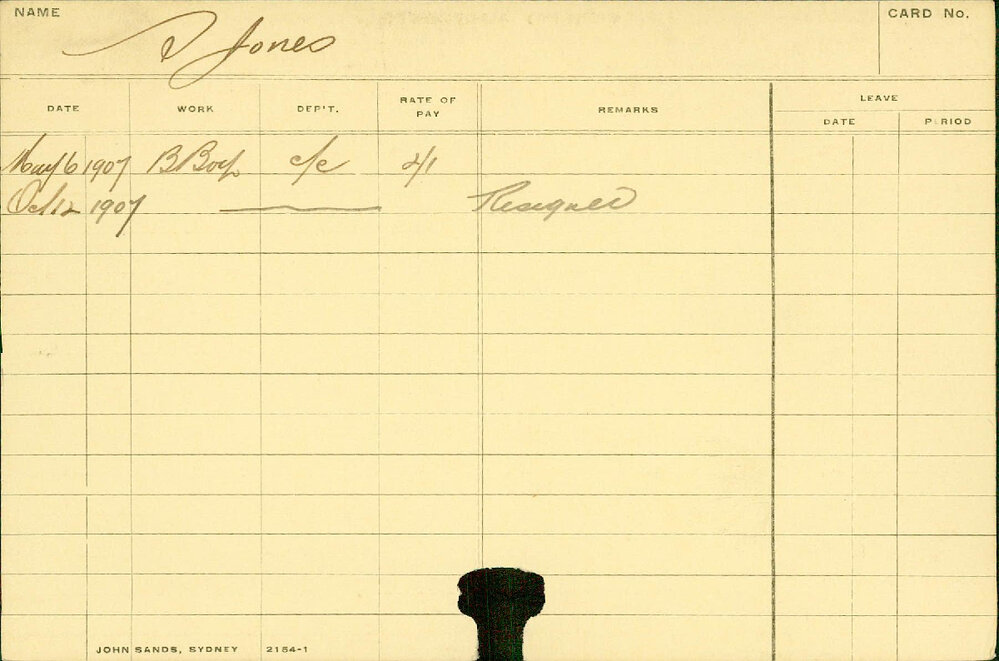 NAME Jones CARD No.
DATE WORK DEP'T. RATE OF PAY REMARKS LEAVE
DATE PERIOD
May 6 1907 B Boy c/c 2/1
Oct 12 1907 Resigned
JOHN SANDS, SYDNEY 2154-1